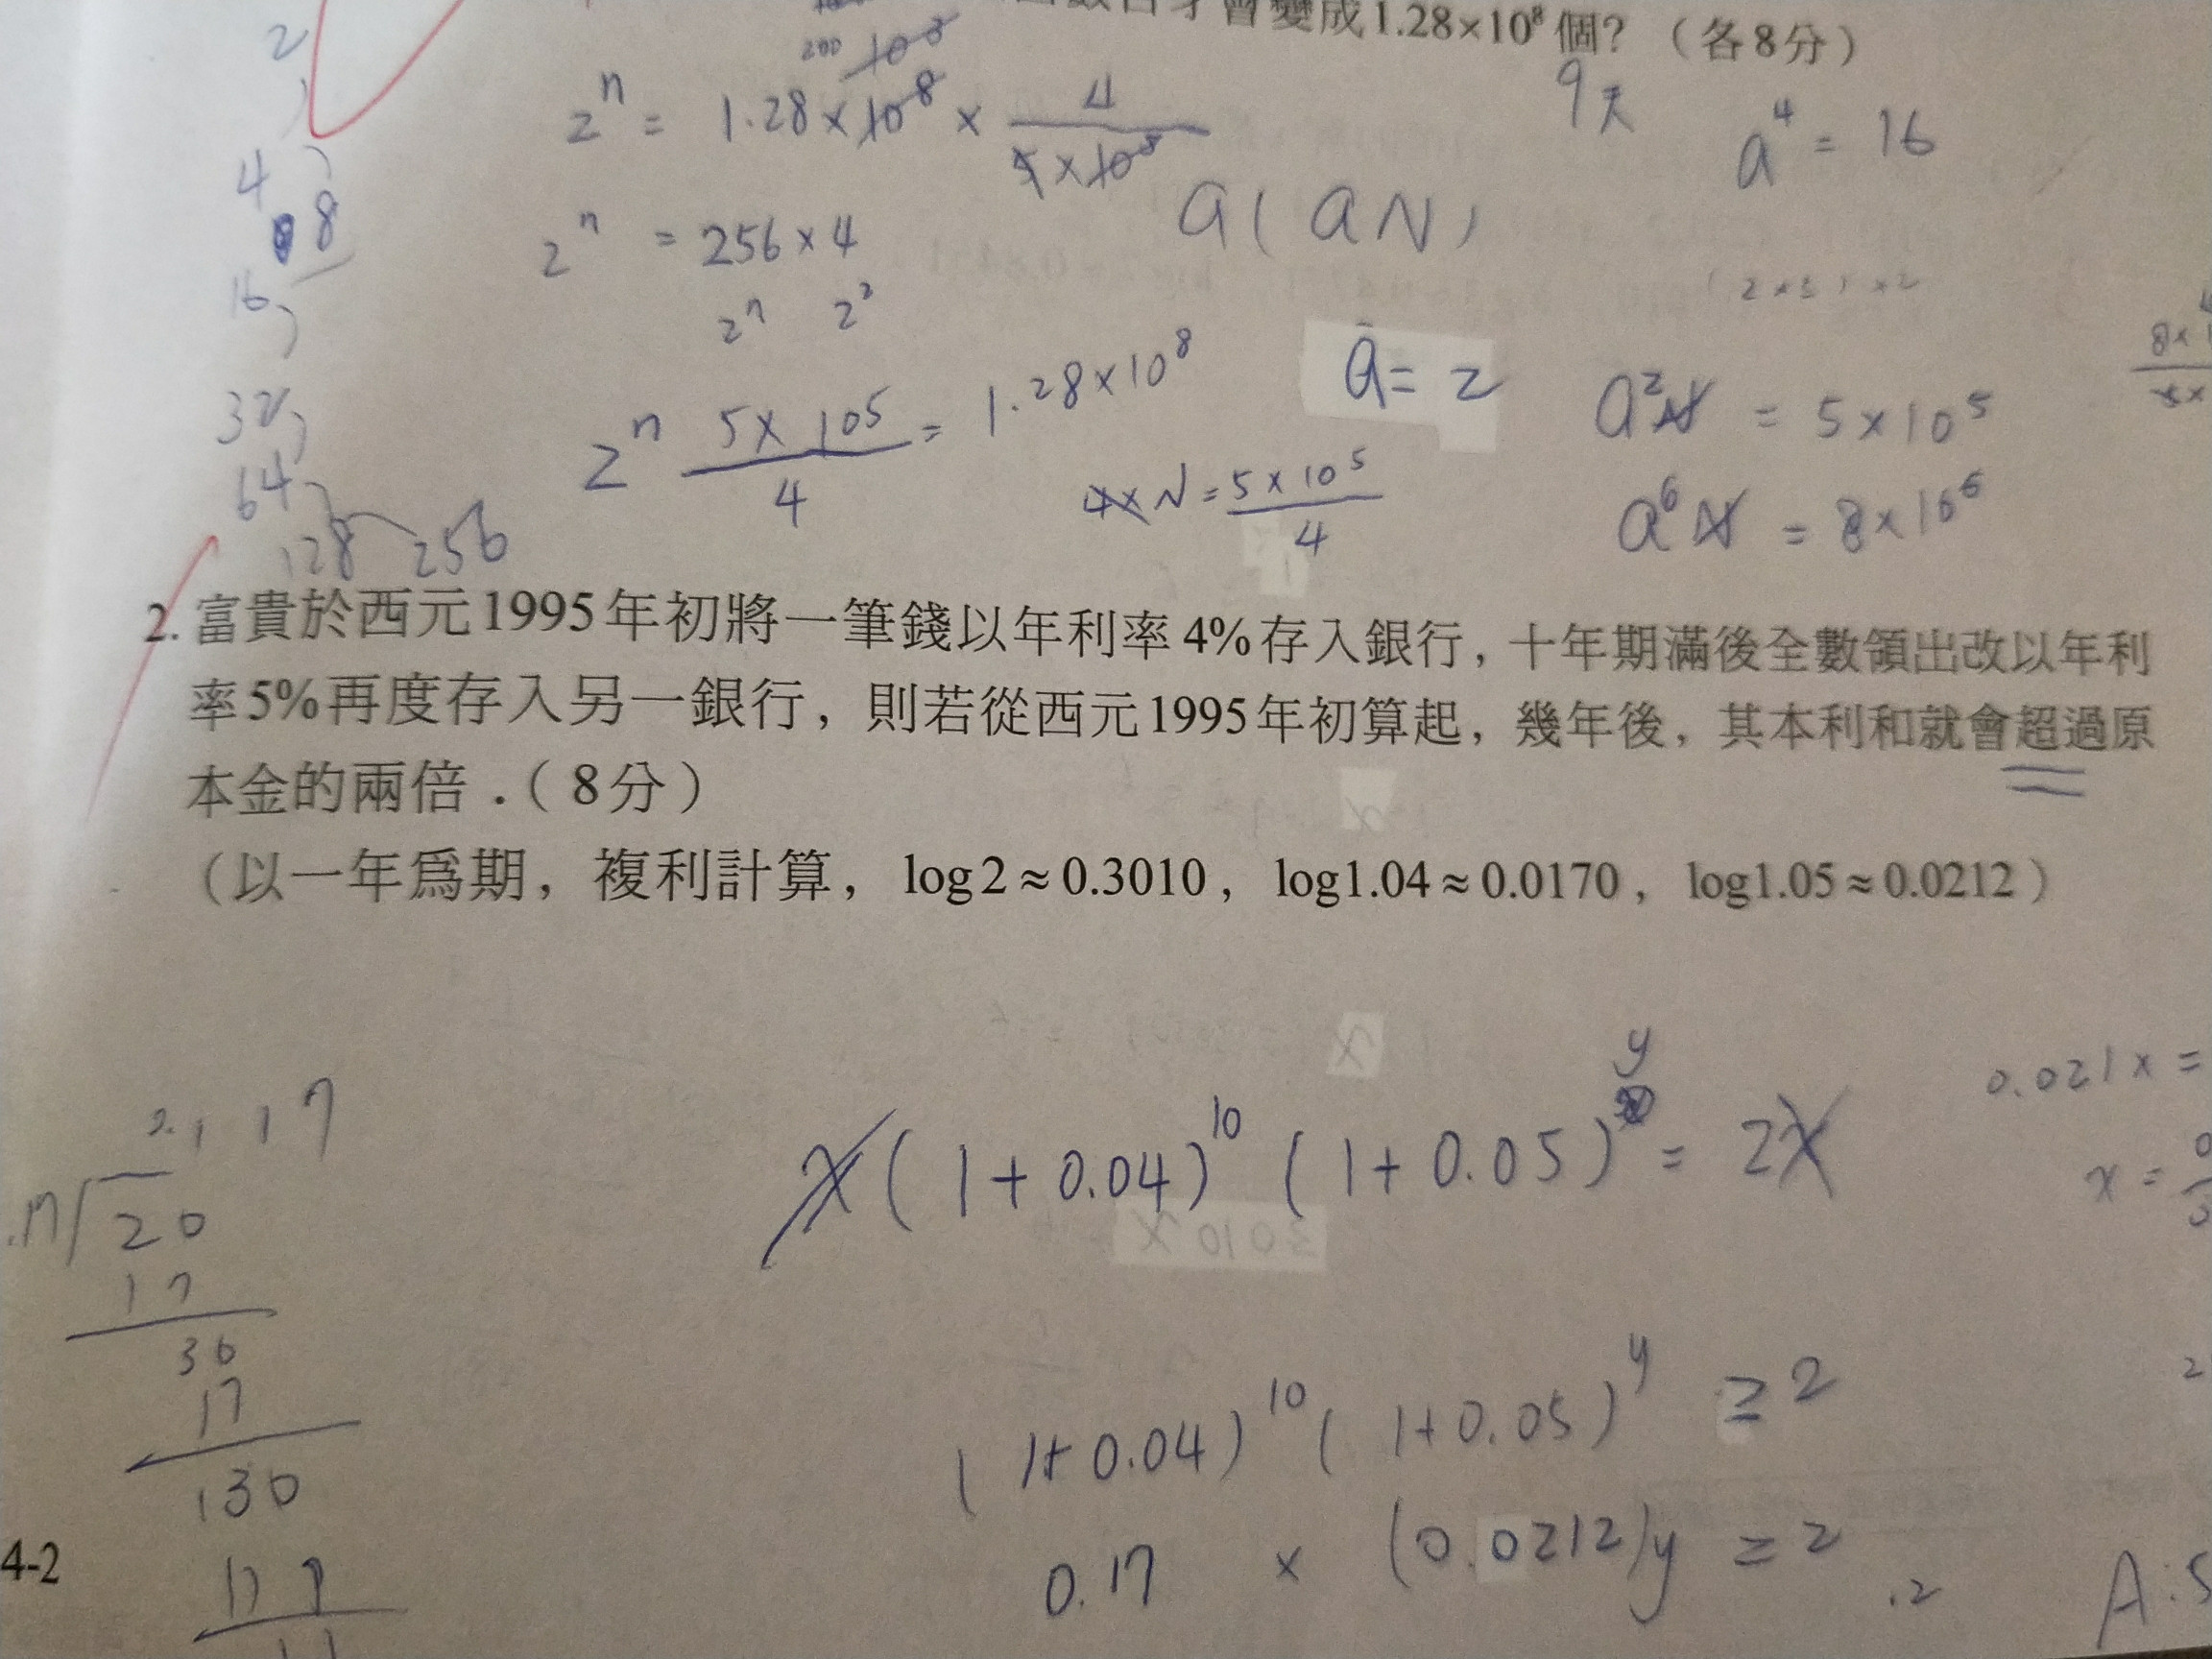 會變成1.28×10⁸個?（各8分）
200 10³
2
9天
2ⁿ = 1.28×10⁸ × 4/(5×10⁵)
a⁴ = 16
4
8
a ( a N )
2ⁿ = 256×4
16
2² 
(2×3)×2
ā = 2
32
2ⁿ (5×10⁵)/4 = 1.28×10⁸
a²N = 5×10⁵
64
4×N = (5×10⁵)/4
a⁶N = 8×10⁶
128 256
2. 富貴於西元1995年初將一筆錢以年利率4%存入銀行，十年期滿後全數領出改以年利
率5%再度存入另一銀行，則若從西元1995年初算起，幾年後，其本利和就會超過原
本金的兩倍．（8分）
（以一年為期，複利計算，log2≈0.3010，log1.04≈0.0170，log1.05≈0.0212）
y
0.021x =
2.117
x(1+0.04)¹⁰(1+0.05) = 2x
x =
.17 20
17
30
17
(1+0.04)¹⁰(1+0.05)^y ≥ 2
130
0.17 × (0.0212)y ≥ 2
.2
A:5
4-2
119
11